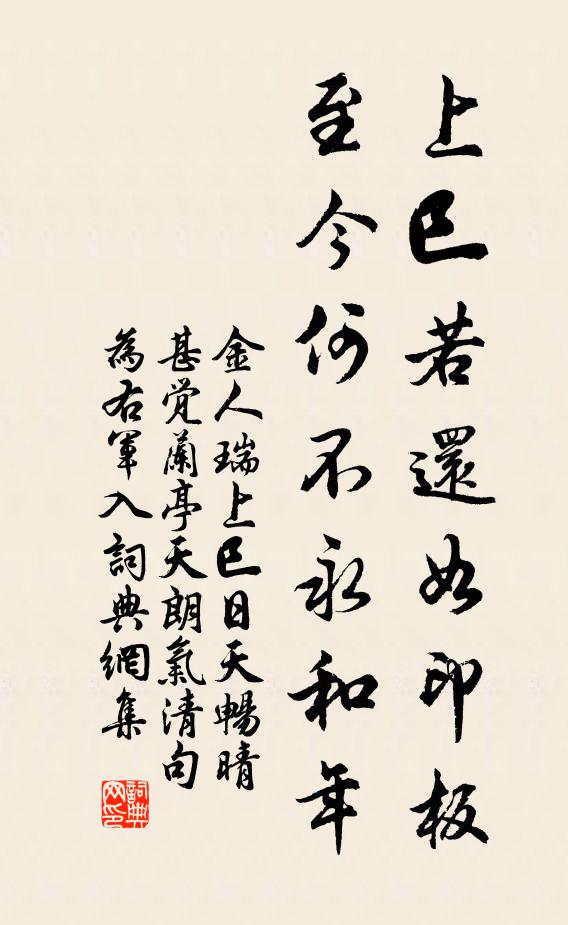 上巳若還如印板
至今何不永和年
金人瑞上巳日天暢晴
甚覺蘭亭天朗氣清句
為右軍入詞典網集
詞典网印